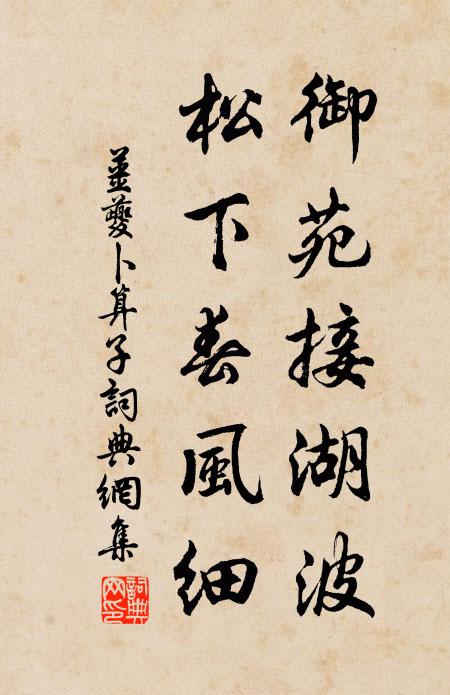 御苑接湖波
松下春風細
薑夔卜算子詞典網集
詞典网印